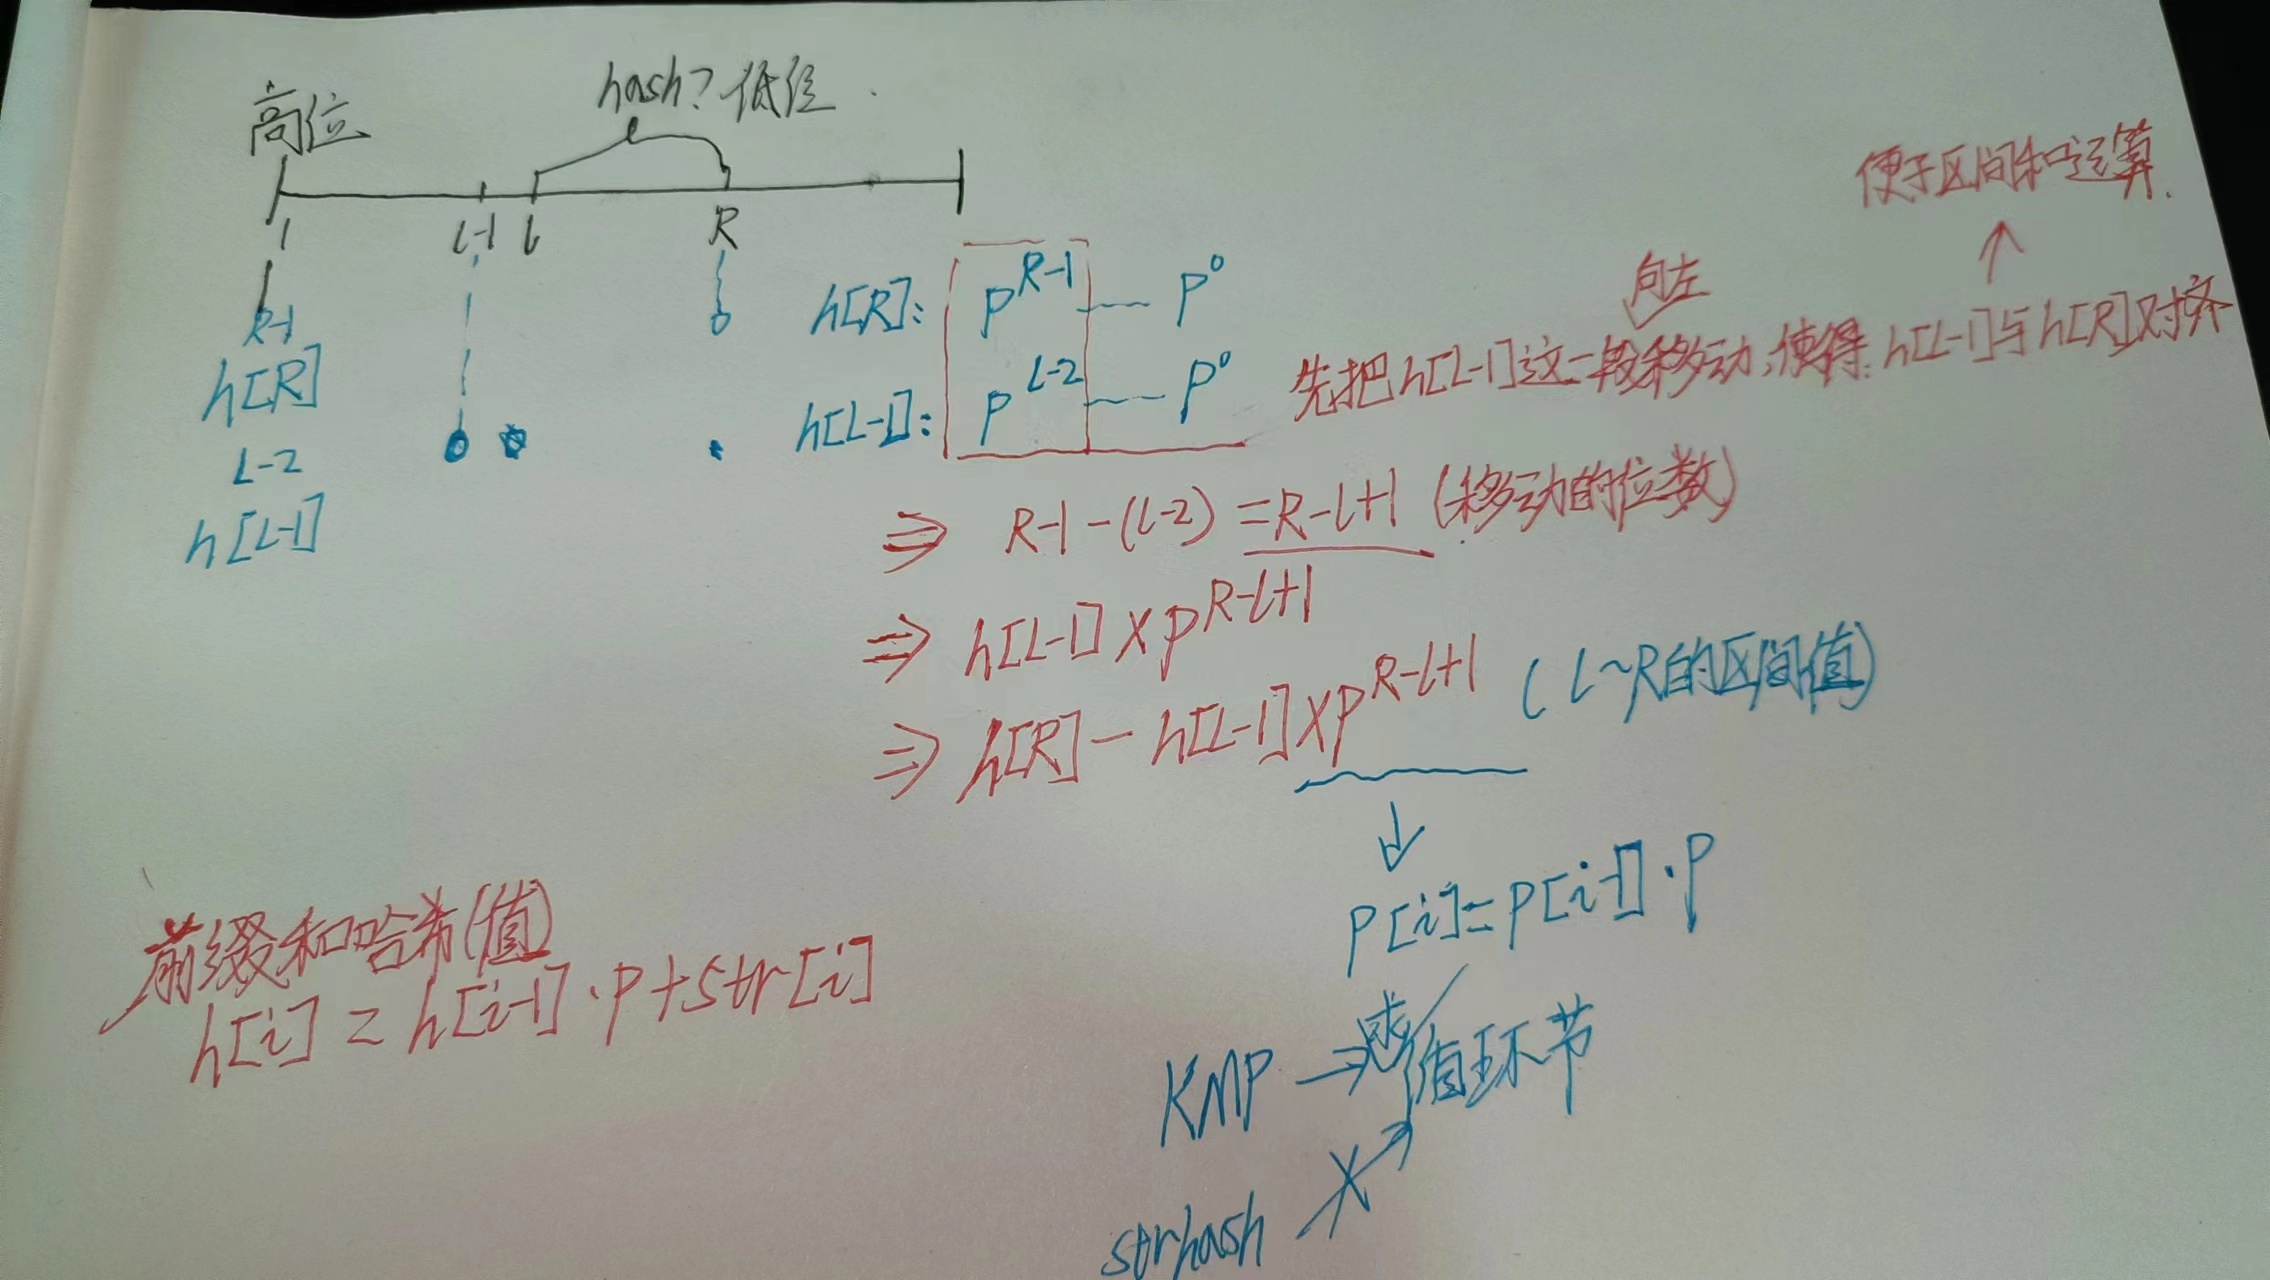 高位
hash? 低位
1 L-1 L R
R-1
h[R]
L-2
h[L-1]
h[R]: P^{R-1} --- P^0
h[L-1]: P^{L-2} --- P^0
便于区间和运算.
↑
向左
先把h[L-1]这一段移动,使得h[L-1]与h[R]对齐
⇒ R-1-(L-2) = R-L+1 (移动的位数)
⇒ h[L-1] × P^{R-L+1}
⇒ h[R] - h[L-1] × P^{R-L+1} (L~R的区间值)
↓
P[i] = P[i-1]·P
前缀和哈希(值)
h[i] = h[i-1]·P + str[i]
KMP → 求循环节
strhash